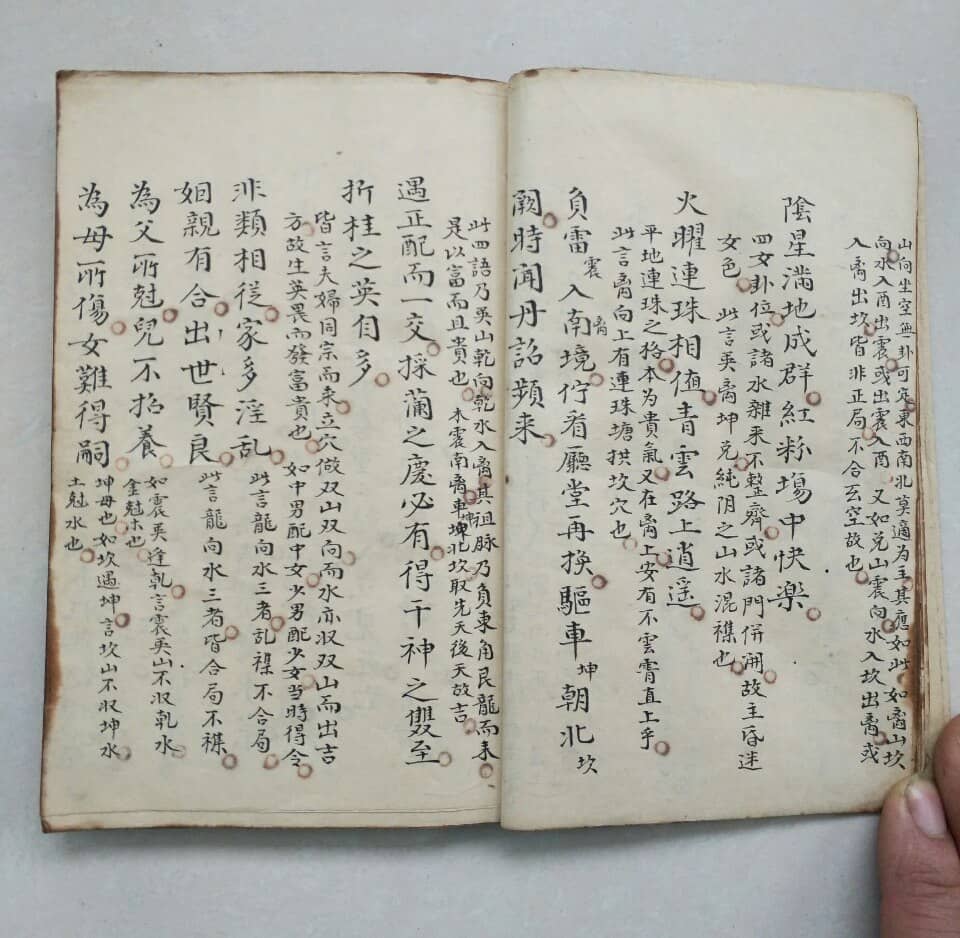 山向坐空無卦可定東西南北莫適為主其應如此如离山坎
向水入酉出震或出震入酉又如兑山震向水入坎出离或
入离出坎皆非正局不合玄空故也
陰星滿地成群紅粉場中快樂
四女卦位或諸水雜来不整齊或諸門併開故主昏迷
女色此言巽离坤兑純阴之山水混襍也
火曜連珠相值青雲路上逍遥
平地連珠之格本为貴氣又在离上安有不雲霄直上乎
此言离向上有連珠塘拱坎穴也
負雷震入南离境佇看廳堂再換驅車坤朝北坎
闕時聞丹詔頻来
此四語乃巽山乾向乾水入离其祖脉乃負東角艮龍而来
是以富而且貴也木震南离車坤北坎取先天後天故言
遇正配而一交採蘭之慶必有得干神之雙至
折桂之英自多
皆言夫婦同宗而来立穴做双山双向而水亦収双山而出吉
方故生英畏而發富貴也如中男配中女少男配少女当時得令
非類相從家多淫乱此言龍向水三者乱襍不合局
姻親有合出世賢良此言龍向水三者皆合局不襍
為父所尅兒不招養如震巽逢乾言震巽山不収乾水
金尅木也
為母所傷女難得嗣坤母也如坎遇坤言坎山不収坤水
土尅水也